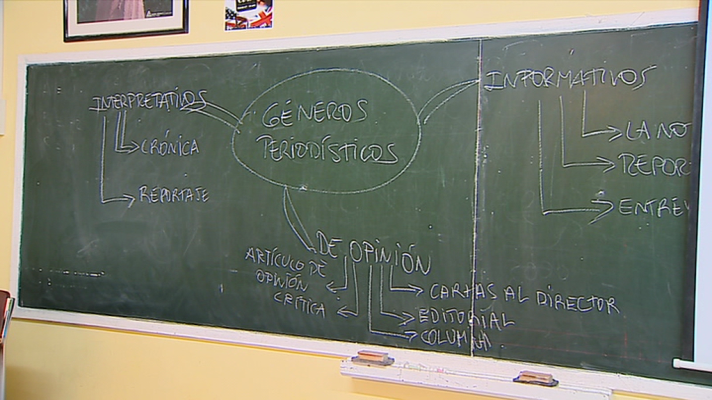 GÉNEROS
PERIODÍSTICOS
INTERPRETATIVOS
CRÓNICA
REPORTAJE
INFORMATIVOS
LA NO
REPOR
ENTREV
DE OPINIÓN
ARTÍCULO DE
OPINIÓN
CRÍTICA
CARTAS AL DIRECTOR
EDITORIAL
COLUMNA